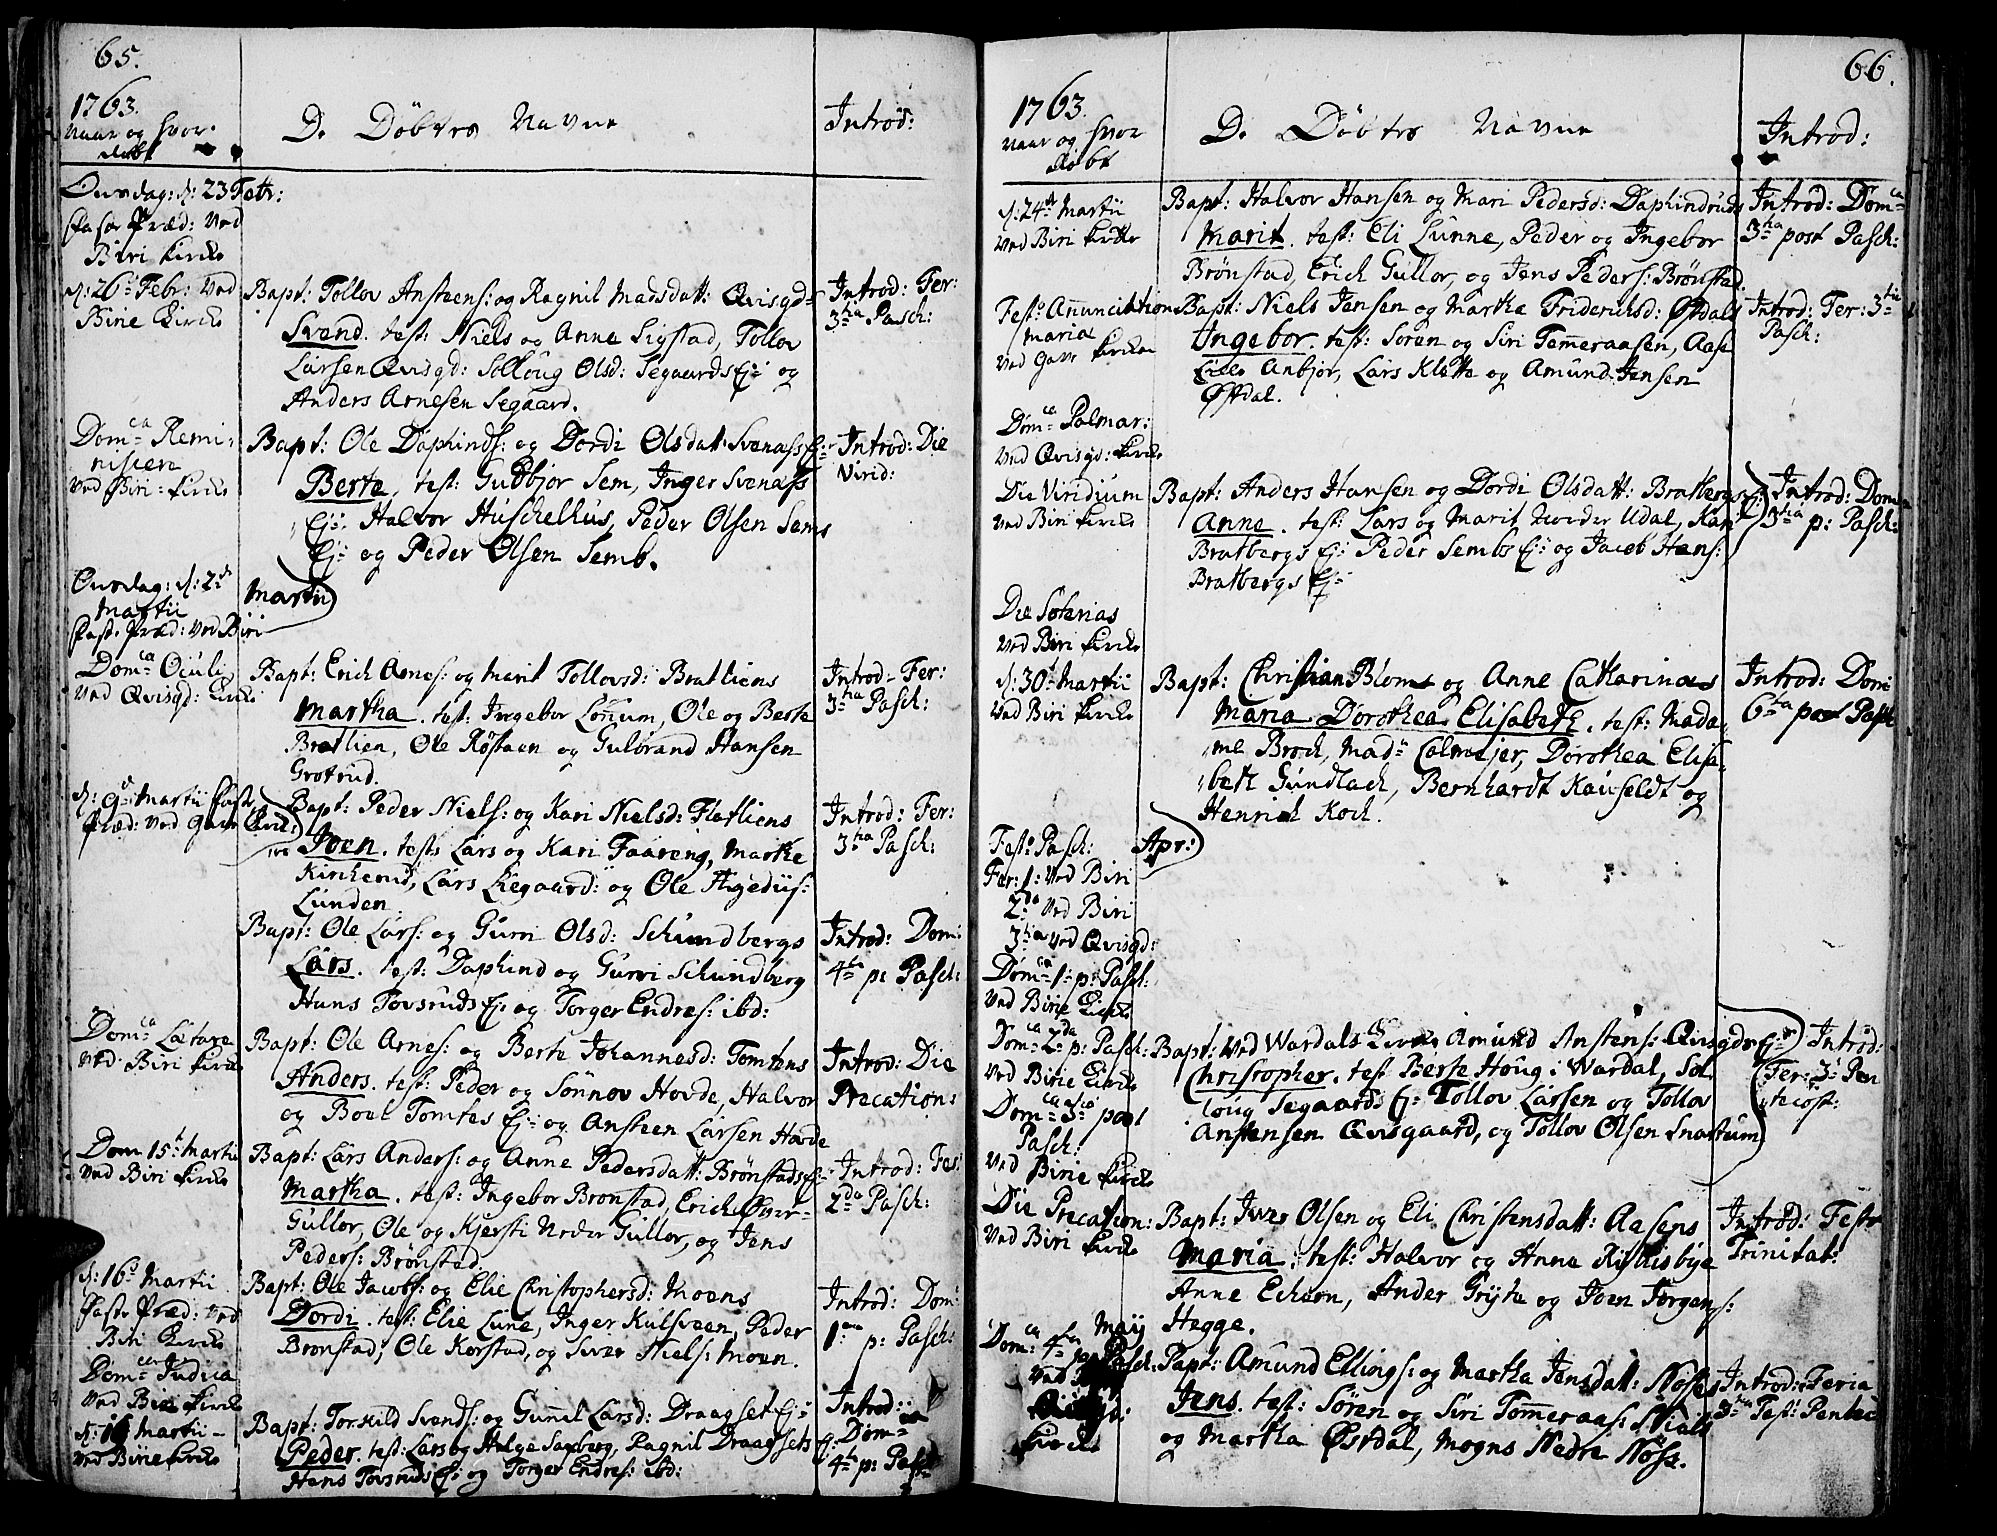 65.
1763.
Naar og hvor
døbt
De Døbtes Navne
Introd:
Onsdag: d: 23 Febr:
Faste Præd: Ved
Biri Kircke
d: 26 Febr: Ved
Birie Kircke
Bapt: Tollov Anstens: og Ragnil Madsdatt: Qvisgds
Svend. test: Niels og Anne Sigstad, Tollov
Larsen Qvisgd: Solloug Olsd: Segaards Ej: og
Anders Arnesen Segaard.
Introd: Fer:
3tia Pasch:
Domca Remi-
niscere
Ved Biri Kircke
Bapt: Ole Daphinds: og Dordi Olsdatt: Svenæss Ej:
Berte. test: Gudbjor Sem, Inger Svenæss
Ej: Halvor Huschelhus, Peder Olsen Sems
Ej: og Peder Olsen Semb.
Introd: Die
Virid:
Onsdag: d: 2d
Martii
Fast: Præd: Ved Biri
Martii
Domca Oculi
Ved Qvisgd: Kircke
Bapt: Erich Arnes: og Marit Tollovsd: Bratliens
Martha. test: Ingebor Lønnum, Ole og Berte
Bratlien, Ole Røstøen og Gulbrand Hansen
Grøtrud.
Introd: Fer:
3tia Pasch:
d: 9d Martii Fast
Præd: Ved Gave Kirck:
Bapt: Peder Niels: og Kari Nielsd: Flatliens
Joen. test: Lars og Kari Faareng, Marthe
Kircherud, Lars Liegaard: og Ole Ægedius:
Lunden
Introd: Fer:
3tia Pasch:
Bapt: Ole Lars: og Gurri Olsd: Schundbergs
Lars. test: Daphind og Gurri Schundberg
Hans Tovsruds Ej: og Torger Endres: ibd:
Introd: Dom:
4ta p: Pasch:
Domca Lætare
Ved Biri Kircke
Bapt: Ole Arnes: og Berte Johannesd: Tomtens
Anders. test: Peder og Sønnov Hovde, Halvor
og Boel Tomtes Ej: og Ansten Larsen Hovde
Introd: Die
Precations
Dom 15t Martii
Ved Biri Kircke
Bapt: Lars Anders: og Anne Pedersdatt: Brønstads Ej:
Martha. test: Ingebor Brønstad, Erich Over-
Gullor, Ole og Kjersti Neder Gullor, og Jens
Peders: Brønstad.
Introd: Fer:
2da Pasch:
d: 16d Martii
Fast: Præd: Ved
Biri Kircke
Bapt: Ole Jacobs: og Elie Christophersd: Moens
Dordi. test: Elie Lune, Inger Kulsveen, Peder
Brønstad, Ole Korstad, og Siver Niels: Moen.
Introd: Dom
1ma p: Pasch:
Domca Judica
Ved Biri Kircke
d: Martii
Ved Birie Kircke
Bapt: Torskild Svends: og Gunnil Larsd: Draagset Ej:
Peder. test: Lars og Helge Saxberg, Ragnil Draagsets Ej:
Hans Tovsruds Ej: og Torger Endres: ibd:
Introd:
Dom:
4ta p: Pasch
66.
1763.
Naar og hvor
døbt
De Døbtes Navne
Introd:
d: 24d Martii
Ved Biri Kircke
Bapt: Halvor Hansen og Mari Pedersd: Daphindruds
Marit. test: Eli Lunne, Peder og Ingebor
Brønstad, Erich Gullor, og Jens Peders: Brønstad.
Introd: Domca
3tia post Pasch:
Fest: Anunciations
Maria
Ved Gave Kircke
Bapt: Niels Jensen og Martha Friderichsd: Østdals
Ingebor. test: Søren og Siri Tømeraasen, Aase
Lille Anbjør, Lars Klette og Amund Jensen
Østdal.
Introd: Fer: 3tia
Pasch:
Domca Palmar:
Ved Qvisgd: Kircke
Die Viridium
Ved Biri Kircke
Bapt: Anders Hansen og Dordi Olsdatt: Bratbergs Ej:
Anne. test: Lars og Marit Norder Udal, Kari
Bratbergs Ej: Peder Sembs Ej: og Jacob Hans:
Bratbergs Ej:
Introd: Dom
3tia p: Pasch:
Die Soterias
Ved Biri Kircke
d: 30t Martii
Ved Biri Kircke
Bapt: Christian Bloms og Anne Catharinas
Maria Dorothea Elisabeth. test: Mada-
me Broch, Mad: Colmejer, Dorothea Elisa-
beth Gundlach, Bernhardt Kauffeldt og
Henrich Koch.
Introd: Dom
6ta post Pasch
Fest: Pasch:
Apr:
Fer: 1: Ved Biri
2da Ved Biri
3tia Ved Qvisgd:
Domca 1: p: Pasch:
Ved Birie Kircke
Domca 2da p: Pasch:
Ved Birie Kircke
Bapt: Ved Wardals Kircke Amund Anstens: Qvisgds Ej:
Christopher. test Berte Houg i Wardal, Sol
loug Segaards Ej: Tollov Larsen og Tollov
Anstensen Qvisgaard, og Tollov Olsen Snartum
Introd:
Fer: 3: Pen
tecost:
Domca 3tia post
Pasch:
Ved Birie Kircke
Die Precation:
Ved Biri Kircke
Bapt: Iver Olsen og Eli Christensdatt: Aasens
Maria. test: Halvor og Anne Riskisbye
Anne Echern, Ander Gryte og Joen Torgers:
Hegge.
Introd: Festo
Trinitat:
Maij
Domca 4ta p: Pasch:
Ved
Kircke
Bapt: Amund Ellings: og Martha Jensdatt: Nøss
Jens. test: Søren og Siri Tømeraas: Niels
og Martha Østdal, Mogns Nedre Nøss.
Introd: Feria
3tia Fest: Pentec